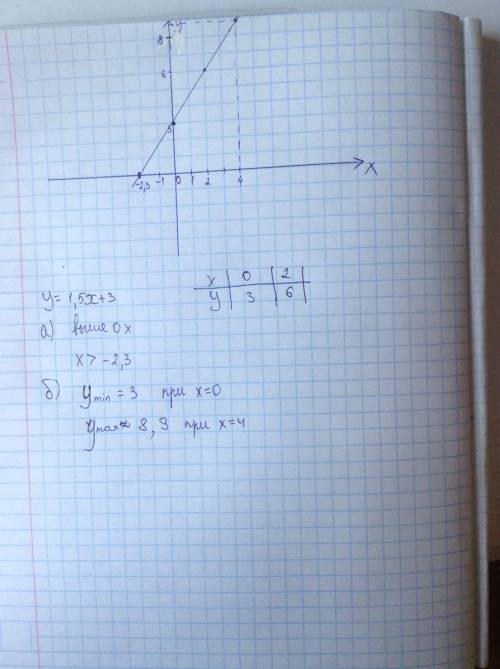 y
8
6
3
-2,3 -1 0 1 2 4 x
x 0 2
y 3 6
y = 1,5x+3
а) выше Ox
x > -2,3
б) ymin = 3 при x=0
ymax≈ 8,9 при x=4